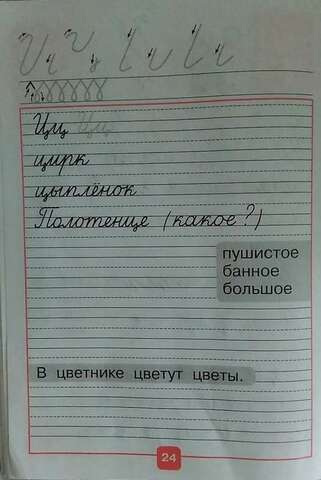 Цц Цц
цирк
цыплёнок
Полотенце (какое?)
пушистое
банное
большое
В цветнике цветут цветы.
24